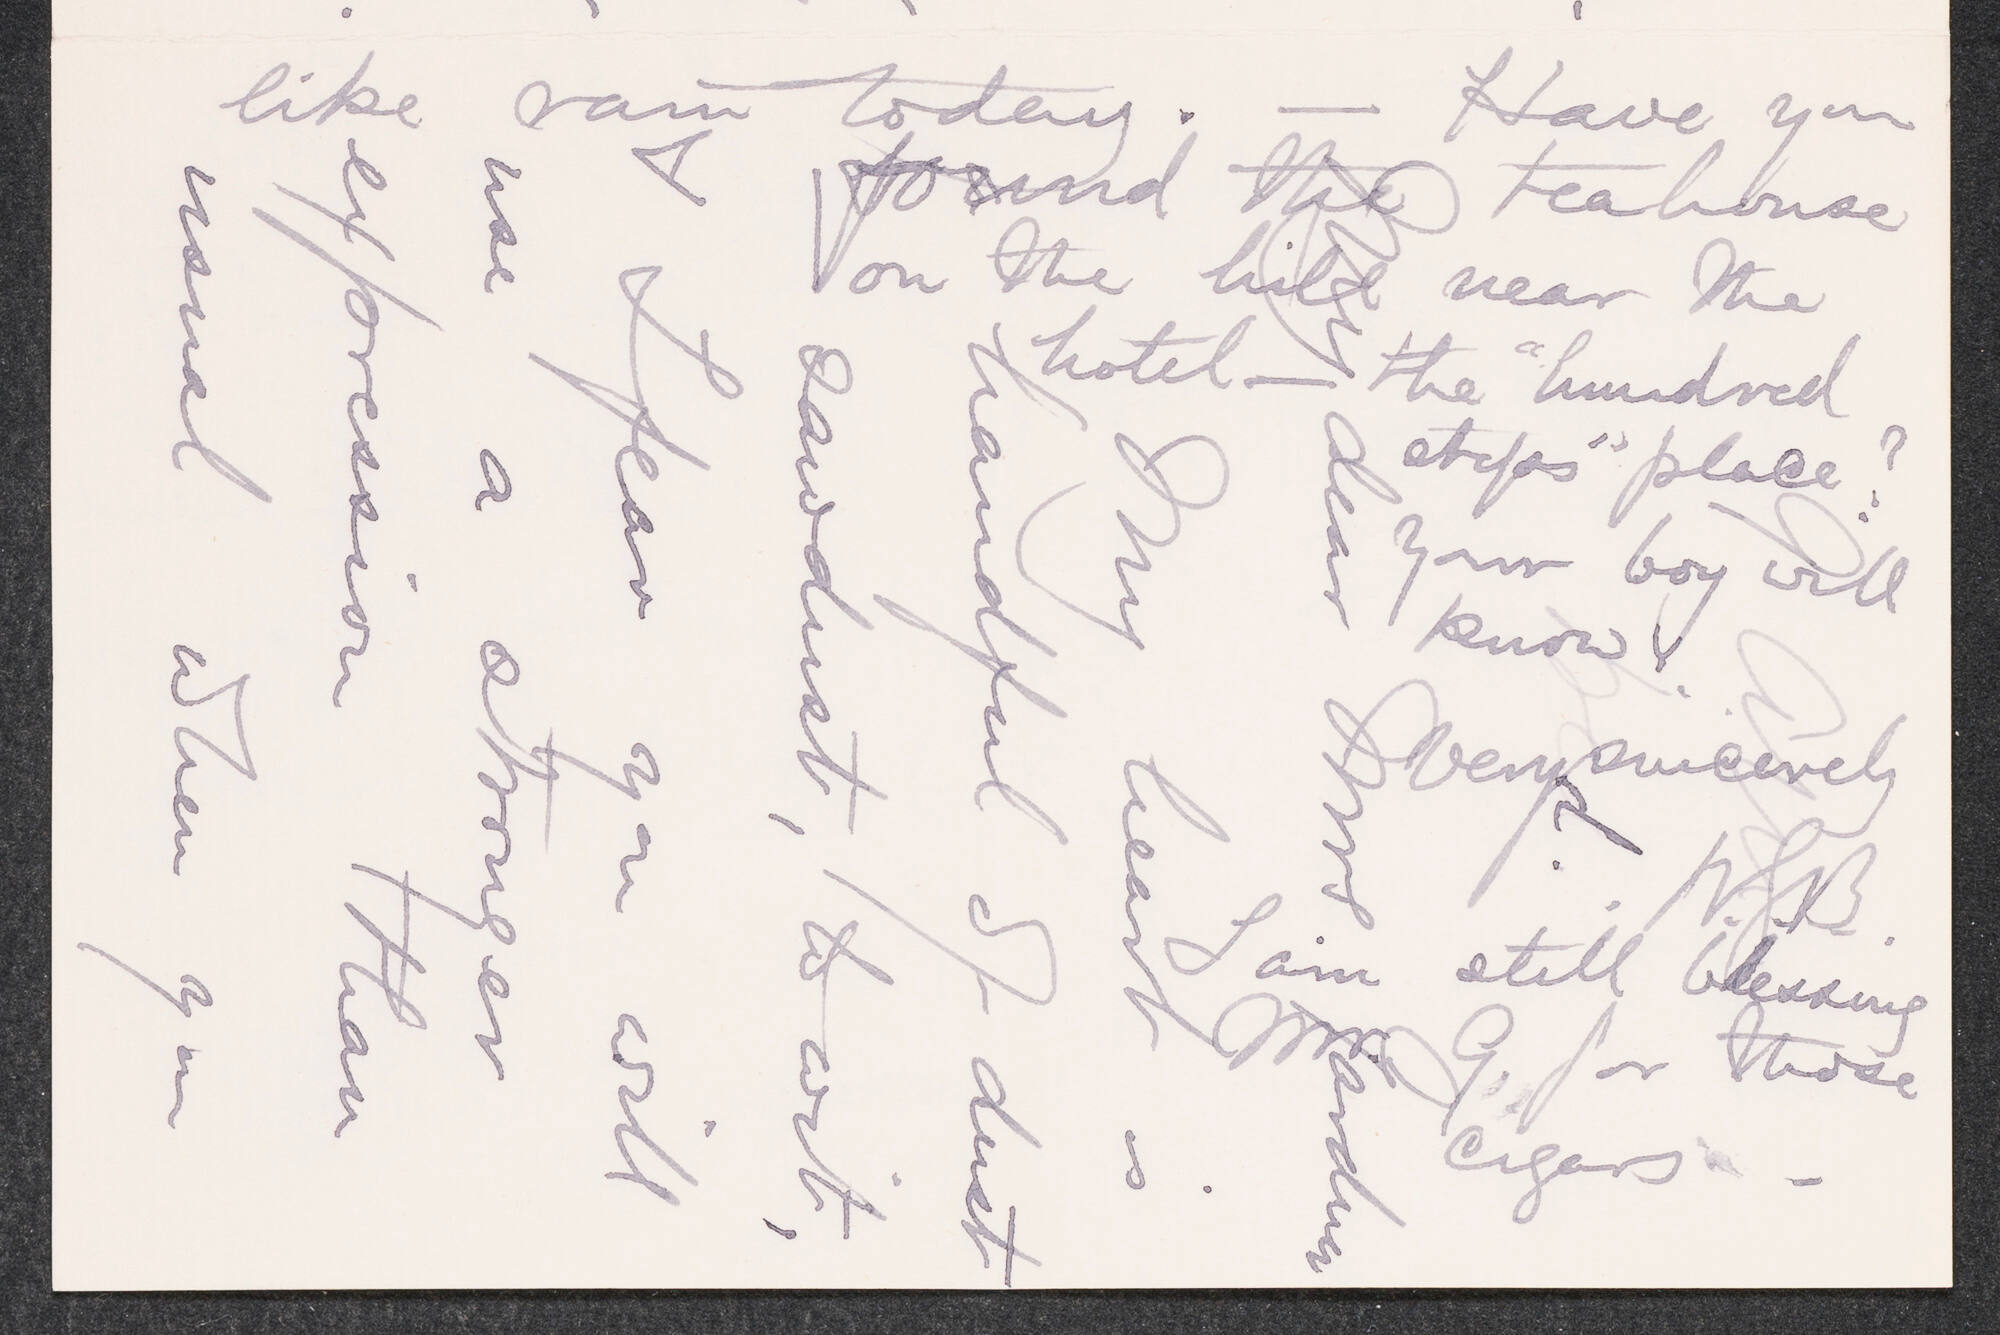 like rain today. — Have you
found the teahouse
on the hill near the
hotel — the "hundred
steps" place?
Your boy will
know.
Very sincerely
W.S.B.
I am still blessing
Mr. G. for those
cigars —
My dear Mrs Gardner
My heart is
handful of dust
sawdust, to wit,
& I fear you will
use a stronger
expression than
usual when you